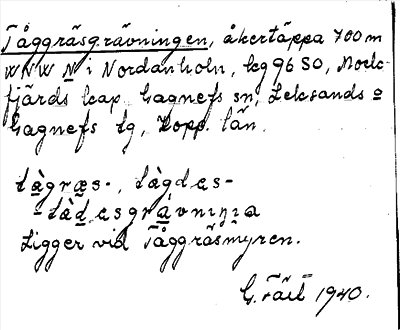 Tåggräsgrävningen, åkertäppa 700 m
WNW N i Nordanholn, kg 96 SO, Mock-
fjärds kap. Gagnefs sn, Leksands o
Gagnefs tg, Kopp. län.
tàgræs-, tàgdəs-
-tàdəsgrävniŋa
Ligger vid Tåggräsmyren.
G. Fält 1940.